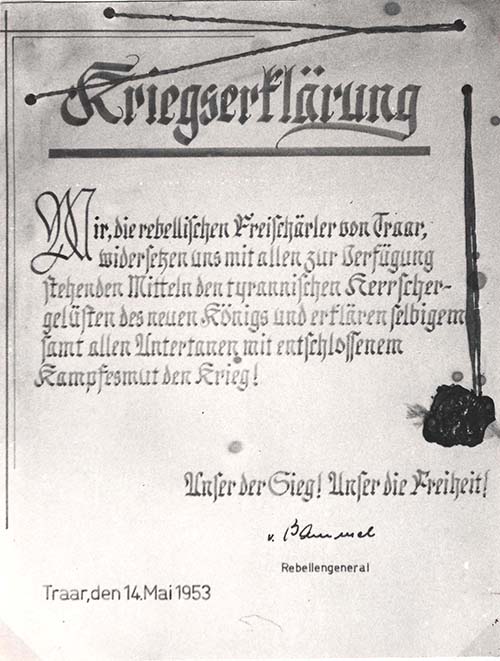 Kriegserklärung
Wir, die rebellischen Freischärler von Traar,
widersetzen uns mit allen zur Verfügung
stehenden Mitteln den tyrannischen Herrscher-
gelüsten des neuen Königs und erklären selbigem
samt allen Untertanen mit entschlossenem
Kampfesmut den Krieg!
Unser der Sieg! Unser die Freiheit!
v. Bammel
Rebellengeneral
Traar, den 14. Mai 1953